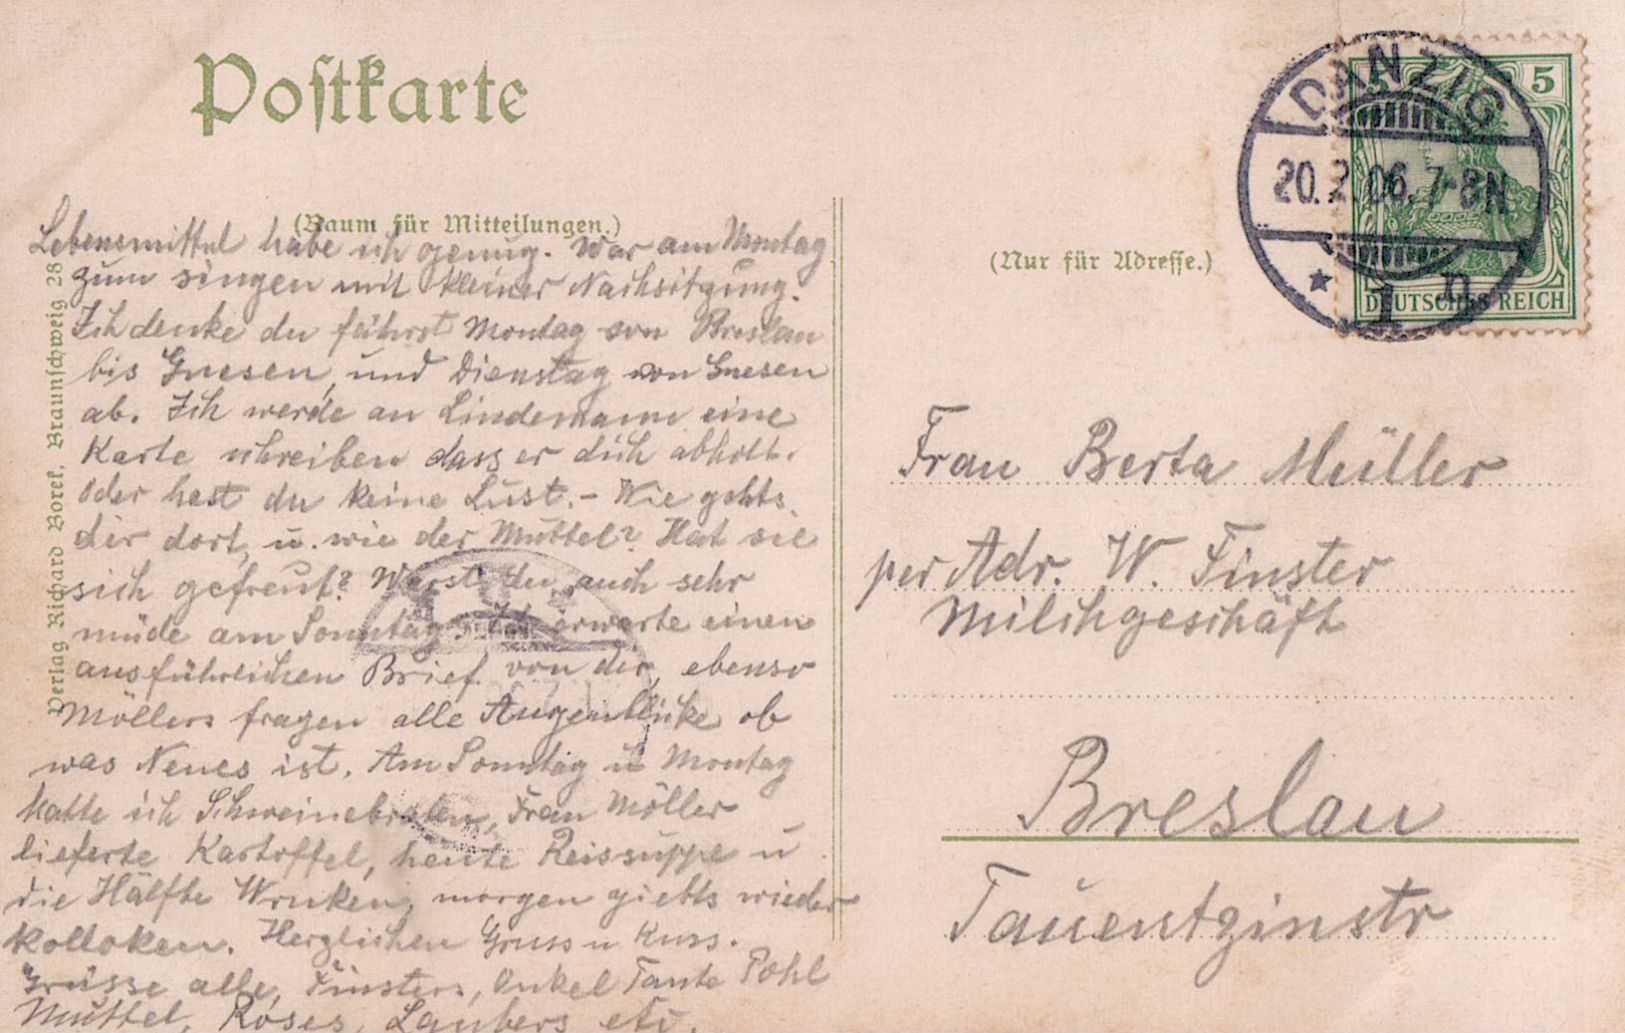 Postkarte
(Raum für Mitteilungen.)
Lebensmittel habe ich genug. War am Montag
zum singen mit kleiner Nachsitzung.
Ich denke du fährst Montag von Breslau
bis Gnesen, und Dienstag von Gnesen
ab. Ich werde an Lindemann eine
Karte schreiben dass er dich abholt.
Oder hast du keine Lust. – Wie gehts
dir dort, u. wie der Muttel? Hat sie
sich gefreut? Warst du auch sehr
müde am Sonntag. Ich erwarte einen
ausführlichen Brief von dir, ebenso
Möllers fragen alle Augenblicke ob
was Neues ist. Am Sonntag u Montag
hatte ich Schweinebraten, Frau Möller
lieferte Kartoffel, heute Reissuppe u
die Hälfte Wruken, morgen giebts wieder
Herzlichen Gruss u Kuss.
Grüsse alle, Finsters, Onkel Tante Pohl
Muttel, Roses, Laubers etc.
Verlag Richard Borek, Braunschweig 28
(Nur für Adresse.)
DANZIG
20.2.06.7-8N
* 1 n
5 5
DEUTSCHES REICH
Frau Berta Müller
per Adr. W. Finster
Milchgeschäft
Breslau
Tauentzinstr